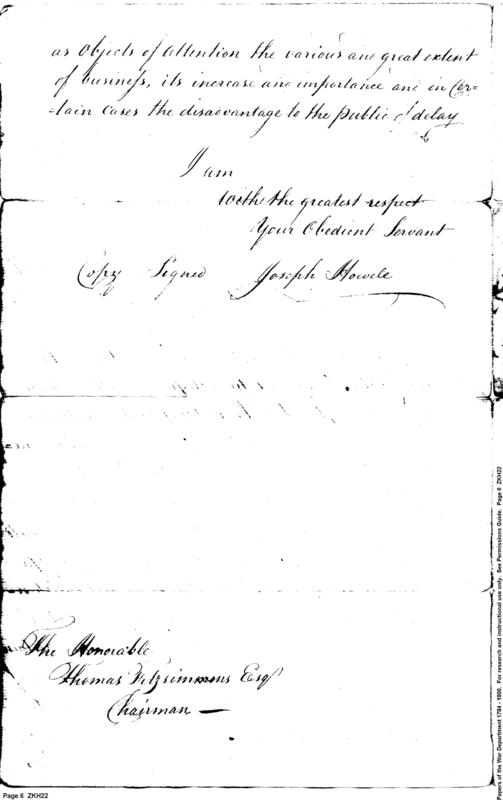 as Objects of Attention the various and great extent
of business, its increase and importance and in Cer=
=tain Cases the disadvantage to the public of delay
I am
With the greatest respect
Your Obedient Servant
Copy Signed Joseph Howell
The Honorable
Thomas Fitzsimmons Esqr
Chairman —
Page 6 ZKH22
Papers of the War Department 1784 - 1800. For research and instructional use only. See Permissions Guide. Page 6 ZKH22